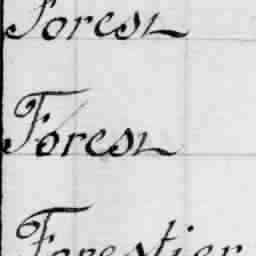 Forest
Forest
Forestier